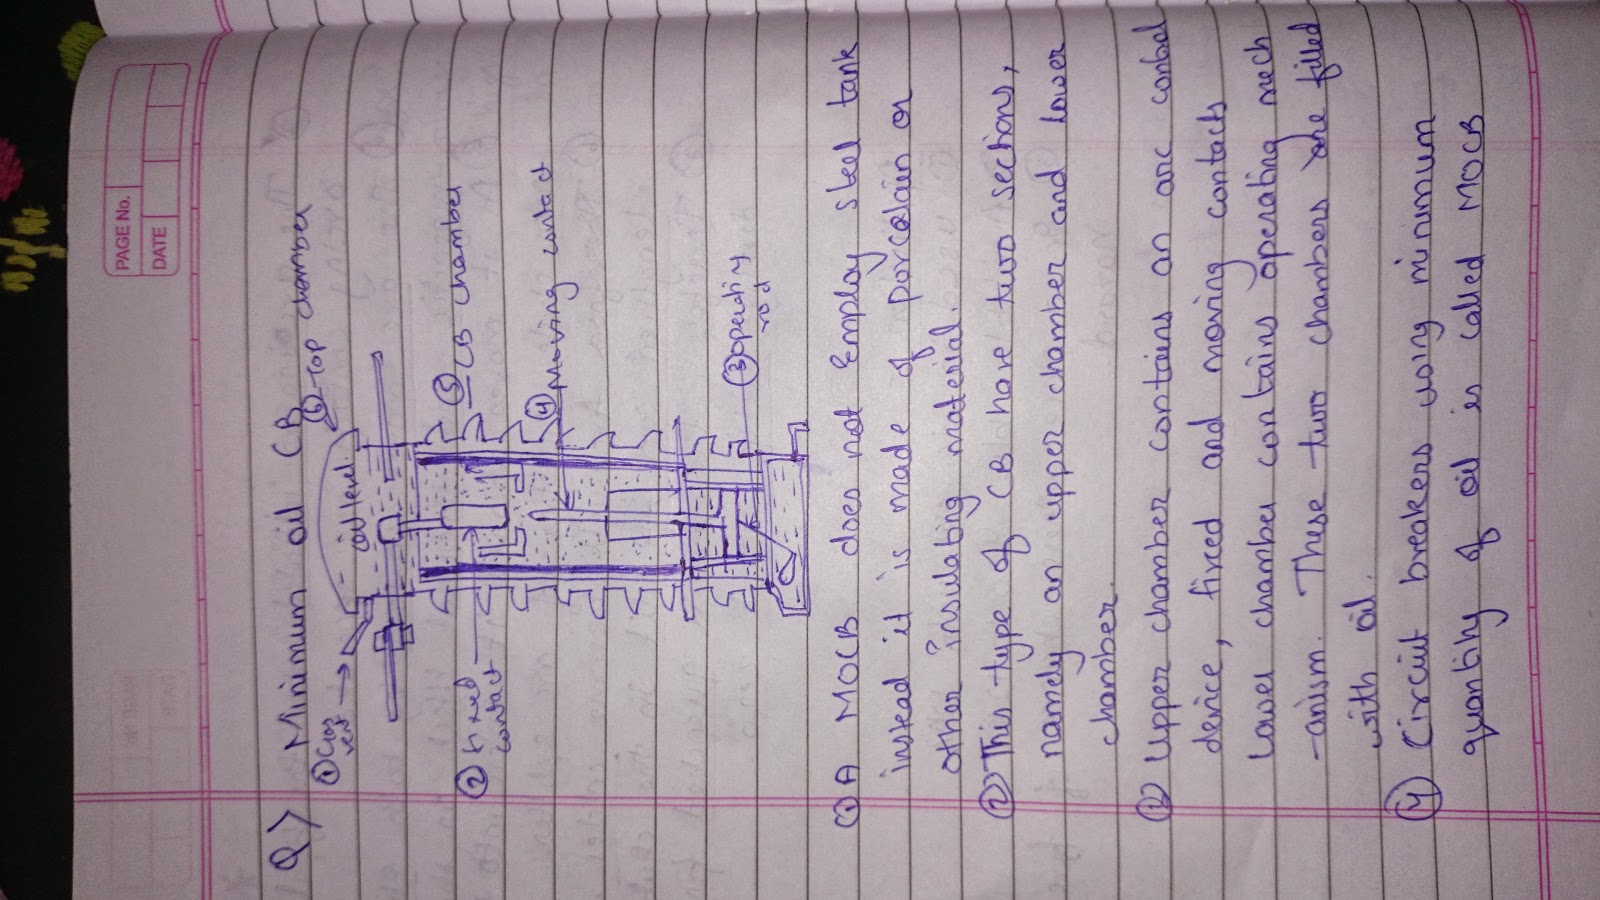 PAGE No.
DATE
Q> Minimum oil CB
① Gas vent
⑥ Top chamber
oil level
⑤ CB chamber
② Fixed contact
④ moving contact
③ operating rod
① A MOCB does not Employ steel tank
instead it is made of porcelain or
other insulating material.
② This type of CB have two sections,
namely an upper chamber and lower
chamber.
③ Upper chamber contains an arc control
device, fixed and moving contacts
Lower chamber contains operating mech
-anism. These two chambers are filled
with oil.
④ Circuit breakers using minimum
quantity of oil is called MOCB